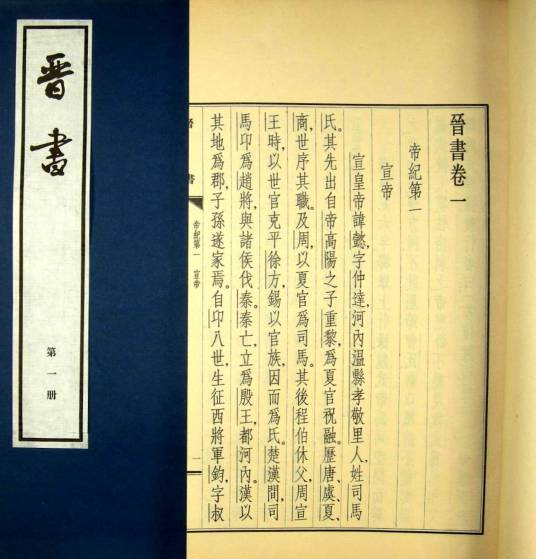 晋書
第一册
晉書卷一
帝紀第一
宣帝
宣皇帝諱懿,字仲達,河內溫縣孝敬里人,姓司馬
氏。其先出自帝高陽之子重黎,為夏官祝融。歷唐、虞、夏、
商,世序其職。及周,以夏官為司馬。其後程伯休父,周宣
王時,以世官克平徐方,錫以官族,因而為氏。楚漢間,司
馬卬為趙將,與諸侯伐秦。秦亡,立為殷王,都河內。漢以
其地為郡,子孫遂家焉。自卬八世,生征西將軍鈞,字叔
帝紀第一 宣帝
一